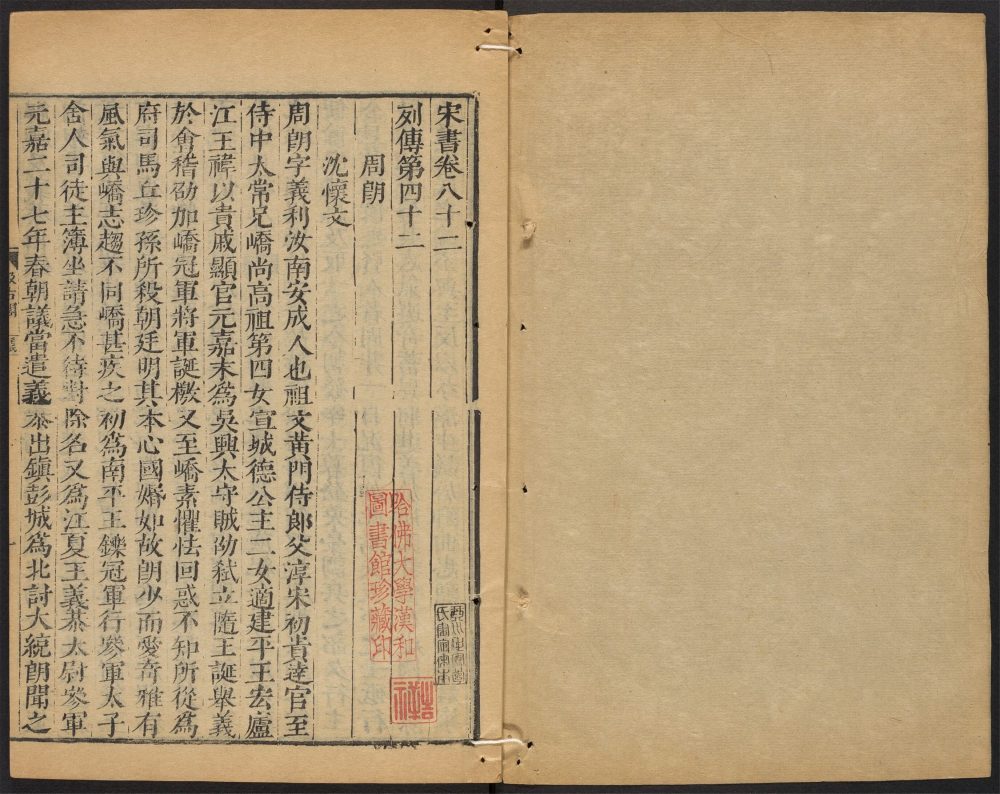 宋書卷八十二
列傳第四十二
周朗
沈懷文
周朗字義利汝南安成人也祖文黃門侍郎父淳宋初貴達官至
侍中太常兄嶠尚高祖第四女宣城德公主二女適建平王宏廬
江王禕以貴戚顯官元嘉末為吳興太守賊劭弒立隨王誕舉義
於會稽劭加嶠冠軍將軍誕檄又至嶠素懼怯回惑不知所從為
府司馬丘珍孫所殺朝廷明其本心國婚如故朗少而愛奇雅有
風氣與嶠志趨不同嶠甚疾之初為南平王鑠冠軍行參軍太子
舍人司徒主簿坐請急不待對除名又為江夏王義恭太尉參軍
元嘉二十七年春朝議當遣義恭出鎮彭城為北討大統朗聞之
哈佛大學漢和
圖書館珍藏印